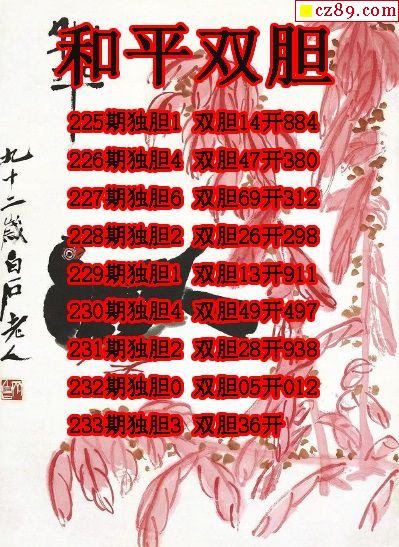 cz89.com
和平双胆
225期独胆1 双胆14开884
226期独胆4 双胆47开380
227期独胆6 双胆69开312
228期独胆2 双胆26开298
229期独胆1 双胆13开911
230期独胆4 双胆49开497
231期独胆2 双胆28开938
232期独胆0 双胆05开012
233期独胆3 双胆36开
九十二岁白石老人